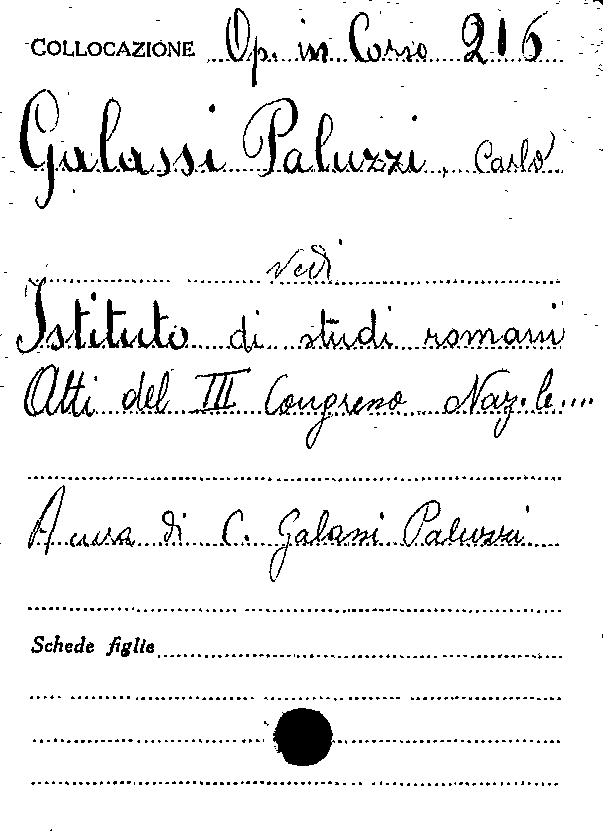 COLLOCAZIONE Op. in Corso 216
Galassi Paluzzi, Carlo
Vedi
Istituto di studi romani
Atti del III Congresso Naz.le....
A cura di C. Galassi Paluzzi
Schede figlie